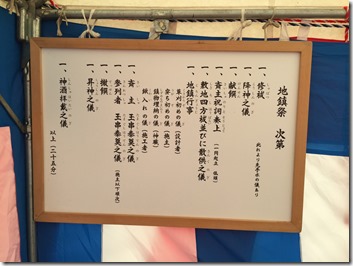 地鎮祭　次第
此れより先手水の儀あり
一、修祓
一、降神之儀
一、献饌
一、斎主祝詞奏上（一同起立 低頭）
一、敷地四方祓並びに散供之儀
一、地鎮行事
草刈初めの儀（設計者）
穿ち初めの儀（施主）
鎮物埋納の儀（神職）
鍬入れの儀（施工者）
一、斎主　玉串奉奠之儀
一、参列者　玉串奉奠之儀（施主以下順次）
一、撤饌
一、昇神之儀
一、神酒拝戴之儀
以上（三十五分）